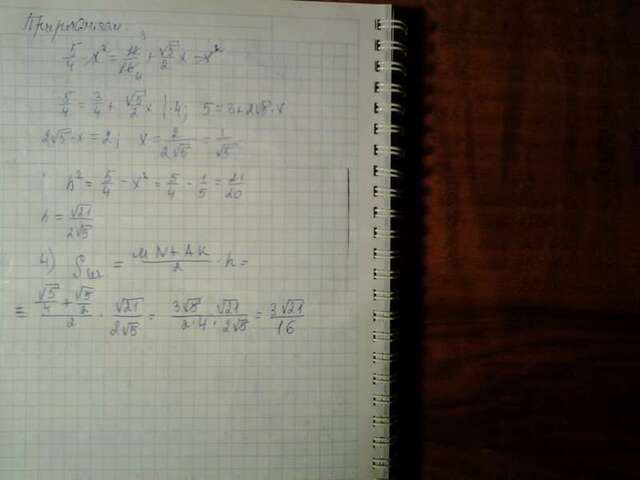 Приравниваем
5/4 - x² = 12/16 + √5/2 x - x²
5/4 = 3/4 + √5/2 x | · 4; 5 = 3 + 2√5 · x
2√5 · x = 2; x = 2/2√5 = 1/√5
h² = 5/4 - x² = 5/4 - 1/5 = 21/20
h = √21/2√5
4) Sш = MN + AK/2 · h =
= √5/4 + √5/2/2 · √21/2√5 = 3√5 · √21/2 · 4 · 2√5 = 3√21/16